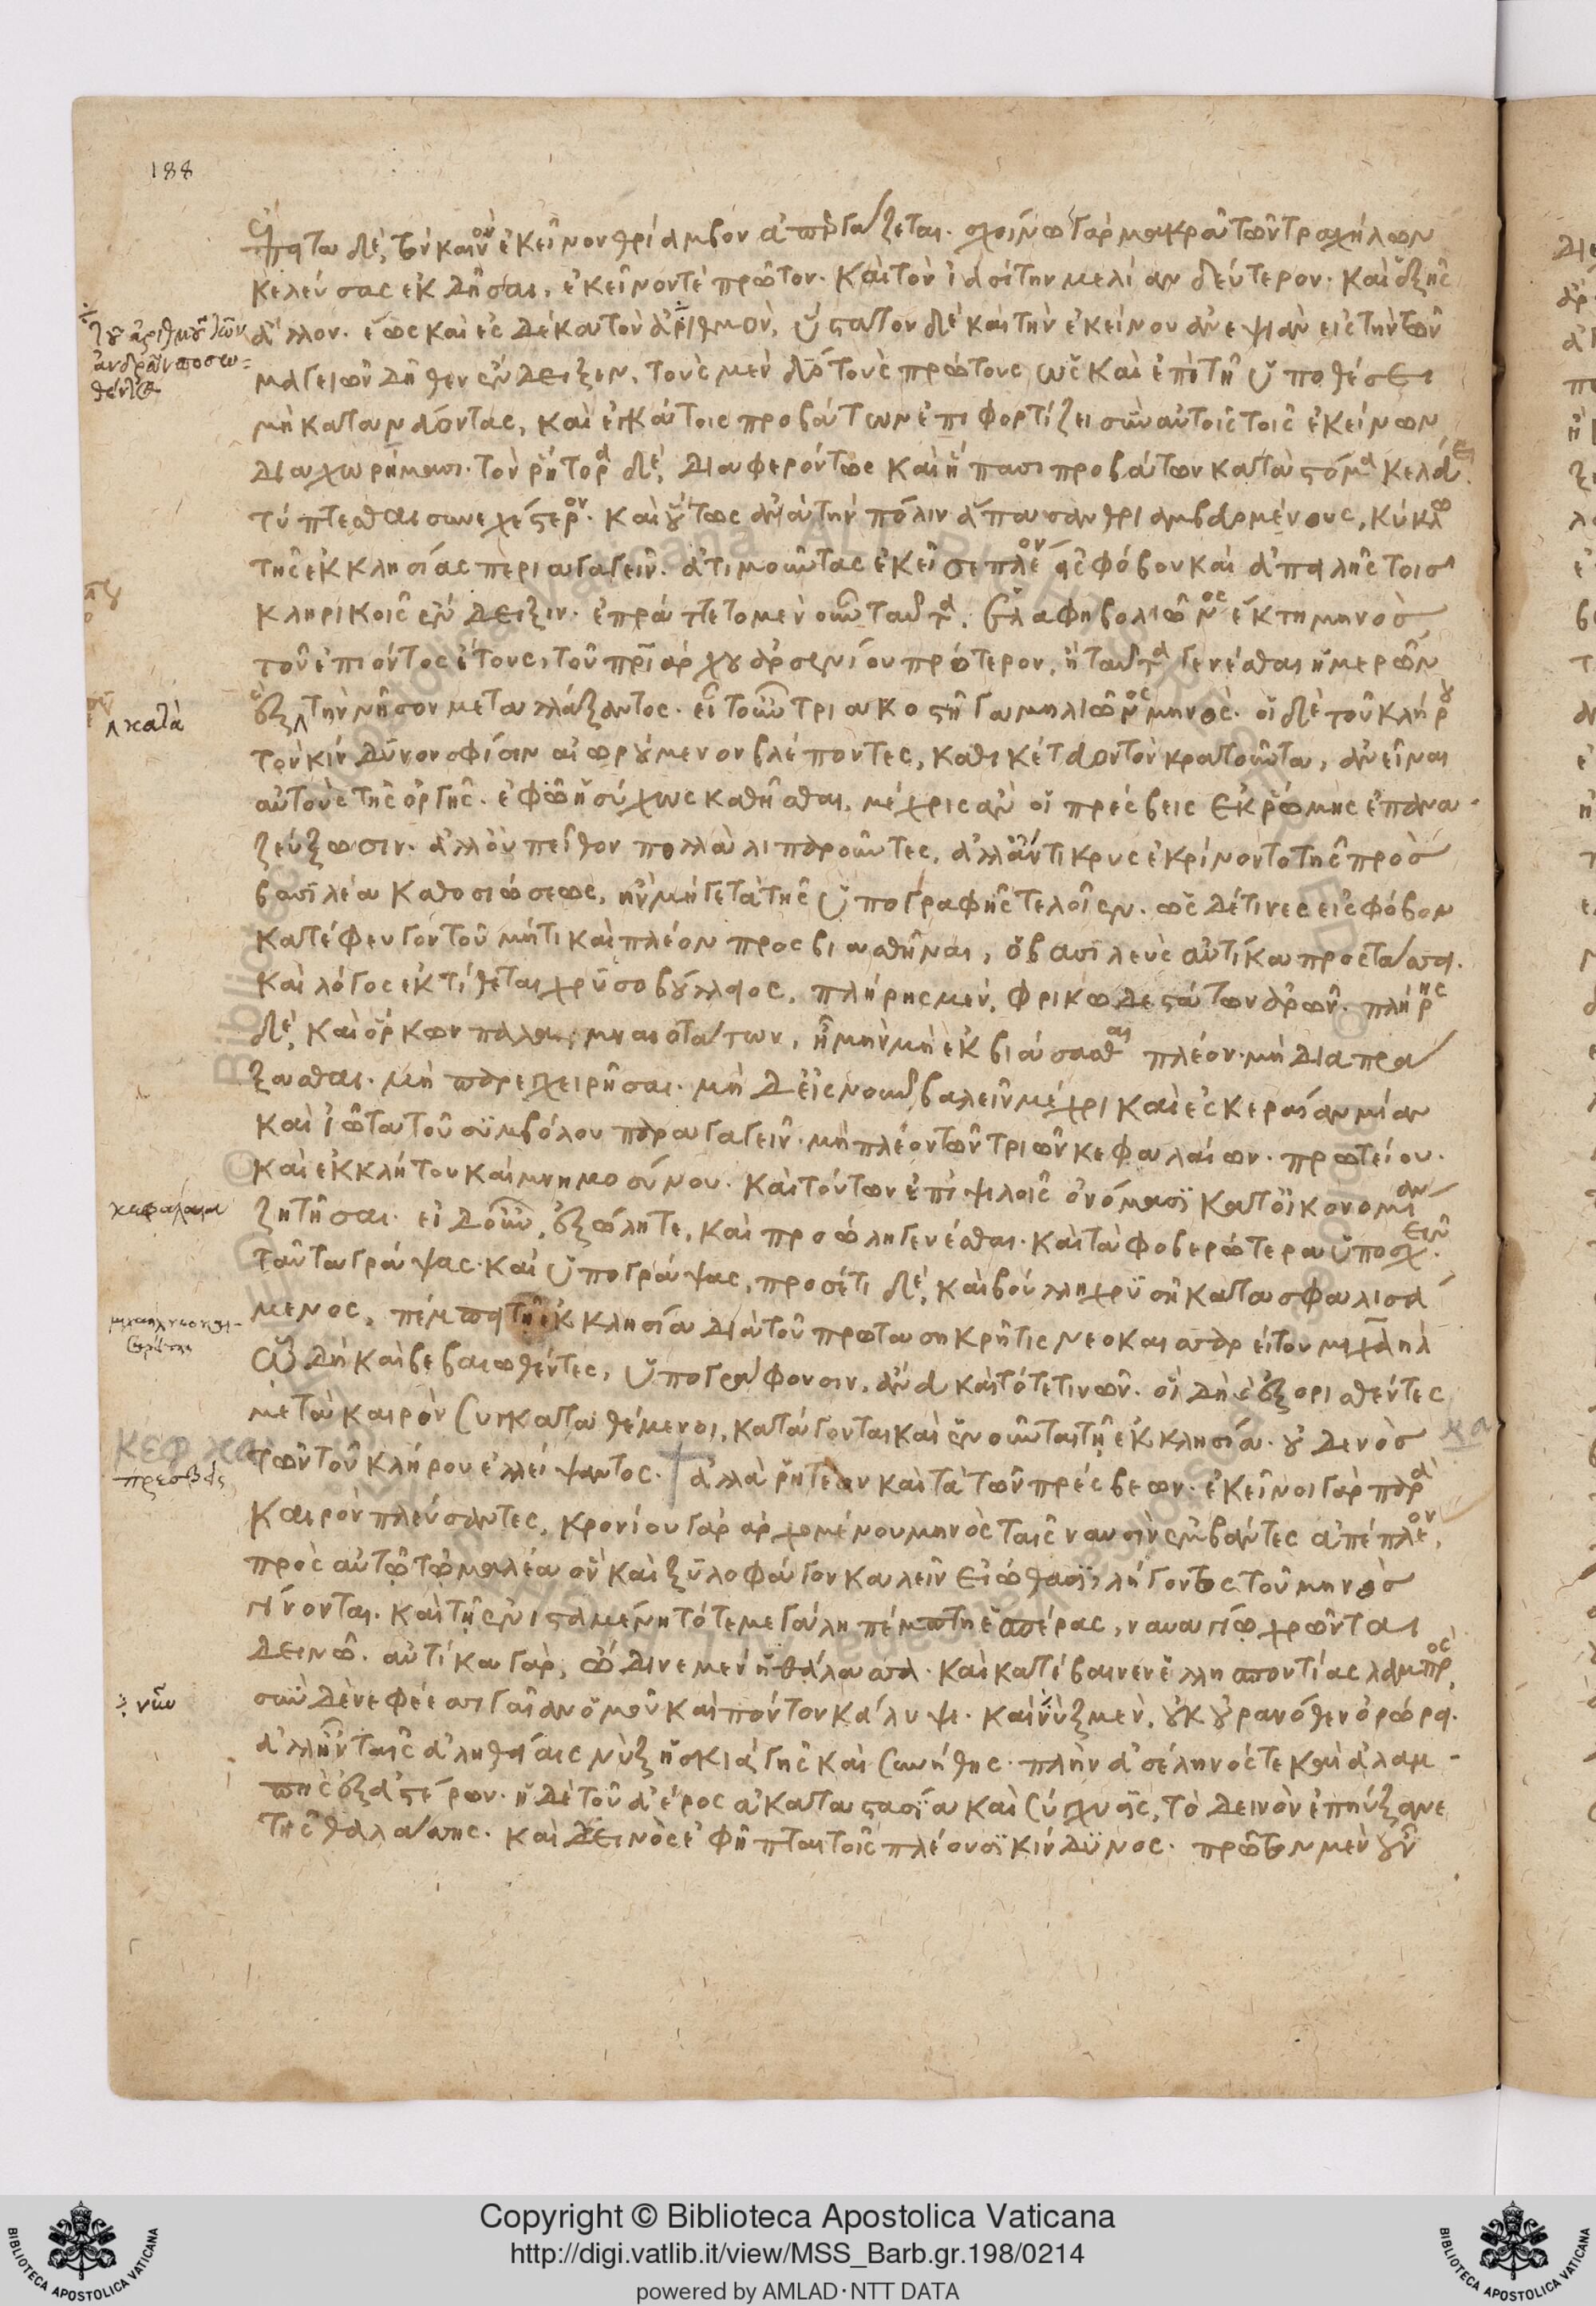 188
ἔπειτα δὲ, τὸν καινὸν ἐκεῖνον θρίαμβον ἀπεργάζεται. σχοίνω γὰρ μακρᾶ τῶν τραχήλων
κελεύσας ἐκδῆσαι, ἐκεῖνόν τε πρῶτον. καὶ τὸν ἰασίτην μελίαν δεύτερον. καὶ ἑξῆς
ἄλλον. ἕως καὶ ἐς δέκατον ἀριθμὸν, ὕστατον δὲ καὶ τὴν ἐκείνου ἀνεψιὰν εἰς τὴν τῶν
μαγειῶν δῆθεν ἔνδειξιν, τοὺς μὲν δύο τοὺς πρώτους ὡς καὶ ἐπὶ τῆ ὑποθέσει
μὴ κατανδόντας, καὶ ἐγκάτοις προβάτων ἐπιφορτίζει σὺν αὐτοῖς τοῖς ἐκείνων
διαχωρήμασι. τὸν ῥήτορα δὲ, διαφερόντως καὶ ἥπασι προβάτων κατὰ στόμα κελεύει
τύπτεσθαι συνεχέστερον. καὶ οὕτως ἀνὰ τὴν πόλιν ἅπασαν θριαμβευομένους, κύκλω
τῆς ἐκκλησίας περιαγαγεῖν. ἀτιμοῦντας ἐκεῖσε πλέον εἰς φόβον καὶ ἀπειλῆς τοῖς
κληρικοῖς ἔνδειξιν. ἐπράττετο μὲν οὖν ταῦτα, ἐλαφηβολιῶνος ἕκτη μηνὸς
τοῦ ἐπιόντος ἔτους, τοῦ πατριάρχου ἀρσενίου πρότερον, ἢ ταῦτα γενέσθαι ἡμερῶν
ἓξ τὴν νῆσον μεταλλάξαντος. εἰτοῦν τριακοστῆ γαμηλιῶνος μηνὸς. οἱ δὲ τοῦ κλήρου
τὸν κίνδυνον σφίσιν αἰωρούμενον βλέποντες, καθικέτευον τὸν κρατοῦντα, ἀνεῖναι
αὐτοὺς τῆς ὀργῆς. ἐφ' ὧ ἡσύχως καθῆσθαι, μέχρις ἂν οἱ πρέσβεις ἐκ ῥώμης ἐπανα-
ζεύξωσιν. ἀλλ' οὐκ ἔπειθον πολλὰ λιπαροῦντες, ἀλλ' ἄντικρυς ἐκρίνοντο τῆς πρὸς
βασιλέα καθοσιώσεως, ἢν μή γε τὰ τῆς ὑπογραφῆς τελοῖεν. ὡς δέ τινες εἰς φόβον
κατέφευγον τοῦ μή τι καὶ πλέον προσβιασθῆναι, ὁ βασιλεὺς αὐτίκα προστάσσει.
καὶ λόγος ἐκτίθεται χρυσοβούλλειος, πλήρης μὲν, φρικωδεστάτων ἀρῶν. πλήρης
δὲ, καὶ ὅρκων παλαμναιοτάτων, ἦ μὴν μὴ ἐκβιάσασθαι πλέον. μὴ διαπρά
ξασθαι. μὴ παρεγχειρῆσαι. μὴ δ' εἰς νοῦν βαλεῖν μέχρι καὶ ἐς κεραίαν μίαν
καὶ ἰῶτα τοῦ συμβόλου παραγαγεῖν. μὴ πλέον τῶν τριῶν κεφαλαίων. πρωτείου.
καὶ ἐκκλήτου καὶ μνημοσύνου. καὶ τούτων ἐπὶ ψιλοῖς ὀνόμασι κατ' οἰκονομίαν
ζητῆσαι. εἰ δ' οὖν, ἐξώλη τε, καὶ προώλη γενέσθαι. καὶ τὰ φοβερώτερα ὑποσχεῖν.
ταῦτα γράψας. καὶ ὑπογράψας, προσέτι δὲ, καὶ βούλλη χρυσῆ κατασφαλισά
μενος, πέμπει τῆ ἐκκλησία διὰ τοῦ πρωτασηκρῆτις νεοκαισαρείτου μιχαὴλ
ᾧ δὴ καὶ βεβαιωθέντες, ὑπογράφουσιν, ἄνευ καὶ τότε τινῶν. οἳ δὴ ἐξορισθέντες
μετὰ καιρὸν συγκαταθέμενοι, κατάγονται καὶ ἑνοῦνται τῆ ἐκκλησία. οὐδενὸς
τῶν τοῦ κλήρου ἐλλείψαντος. ἀλλὰ ῥητέον καὶ τὰ τῶν πρέσβεων. ἐκεῖνοι γὰρ παρὰ
καιρὸν πλεύσαντες, κρονίου γὰρ ἀρχομένου μηνὸς ταῖς ναυσὶν ἐμβάντες ἀπέπλεον,
πρὸς αὐτῶ τῶ μαλέα ὃν καὶ ξυλοφάγον καλεῖν εἰώθασι, λήγοντος τοῦ μηνὸς
γίνονται. καὶ τῆ ἐνισταμένη τότε μεγάλη πέμπτη ἑσπέρας, ναυαγίω χρῶνται
δεινῶ. αὐτίκα γὰρ, ὤδινε μὲν ἡ θάλασσα. καὶ κατέβαινεν ἕλλησποντίας λαμπρὸς,
σὺν δὲ νεφέεσσι γαῖαν ὁμοῦ καὶ πόντον κάλυψε. καὶ νὺξ μὲν, οὐκ οὐρανόθεν ὀρώρει.
ἀλλ' ἦν ταῖς ἀληθείαις νὺξ ἡ σκιὰ γῆς καὶ συνήθης. πλὴν ἀσέληνός τε καὶ ἀλαμ-
πὴς ἐξ ἀστέρων. ἡ δὲ τοῦ ἀέρος ἀκαταστασία καὶ σύγχυσις, τὸ δεινὸν ἐπηύξανε
τῆς θαλάσσης. καὶ δεινὸς ἐφῆπται τοῖς πλέουσι κίνδυνος. πρῶτον μὲν οὖν
κατὰ
κεφάλαια
πρεσβείς
νῶν
Copyright © Biblioteca Apostolica Vaticana
http://digi.vatlib.it/view/MSS_Barb.gr.198/0214
powered by AMLAD·NTT DATA
BIBLIOTECA APOSTOLICA VATICANA
BIBLIOTECA APOSTOLICA VATICANA